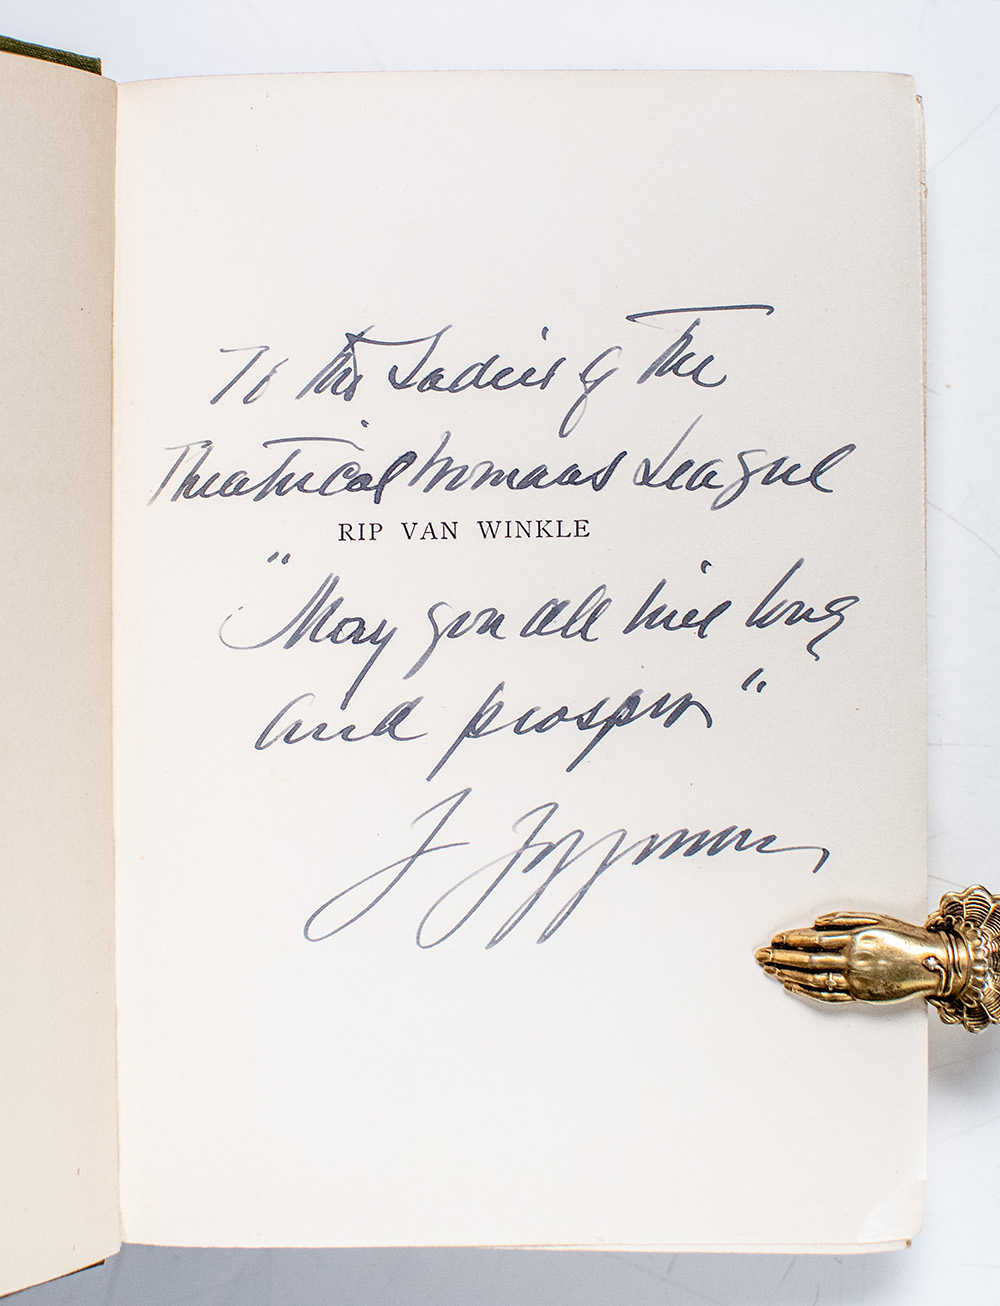 To the Ladies of The
Theatrical Womans League
RIP VAN WINKLE
"May you all live long
and prosper"
J Jefferson